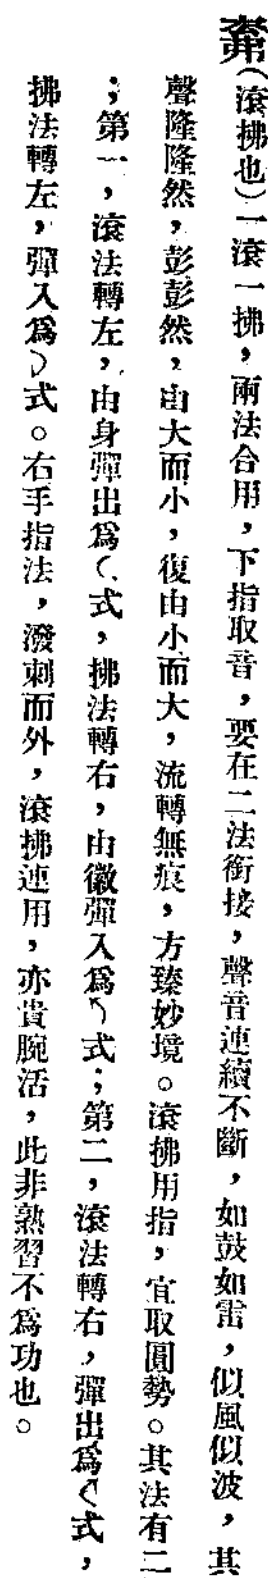 𢍉（滾拂也）一滾一拂，兩法合用，下指取音，要在二法銜接，聲音連續不斷，如鼓如雷，似風似波，其
聲隆隆然，彭彭然，由大而小，復由小而大，流轉無痕，方臻妙境。滾拂用指，宜取圓勢。其法有二
；第一，滾法轉左，由身彈出爲〱式，拂法轉右，由徽彈入爲㇏式；第二，滾法轉右，彈出爲〱式，
拂法轉左，彈入爲㇁式。右手指法，潑剌而外，滾拂連用，亦貴腕活，此非熟習不爲功也。